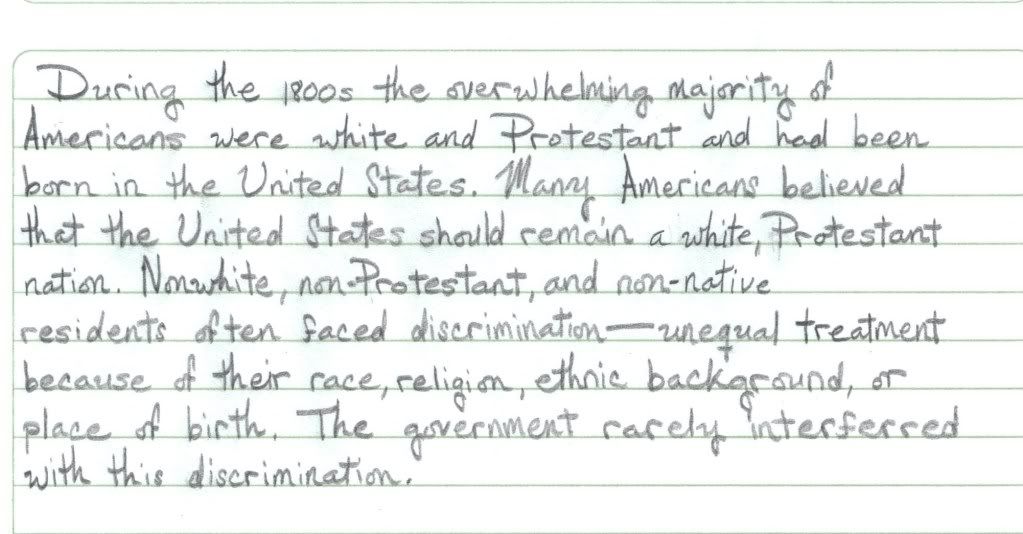 During the 1800s the overwhelming majority of
Americans were white and Protestant and had been
born in the United States. Many Americans believed
that the United States should remain a white, Protestant
nation. Nonwhite, non-Protestant, and non-native
residents often faced discrimination—unequal treatment
because of their race, religion, ethnic background, or
place of birth. The government rarely interferred
with this discrimination.